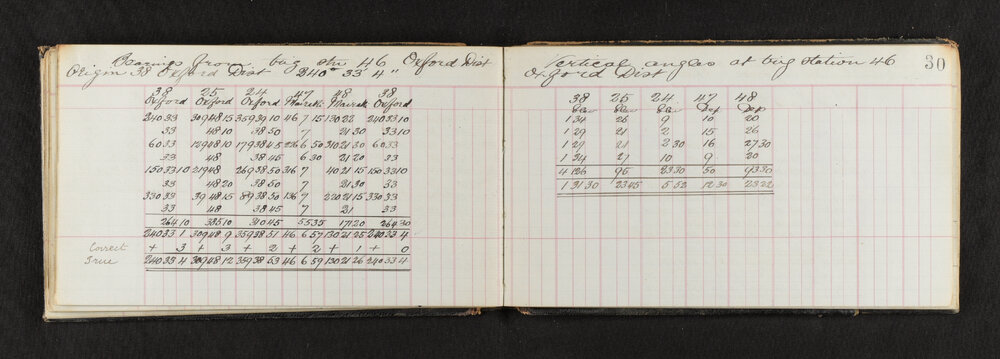 Bearings from trig stn 46 Oxford Dist
Origin 38 Oxford Dist 240° 33' 4"
38 25 24 47 48 38
Oxford Oxford Oxford Mairaki Mairaki Oxford
240 33 309 48 15 359 39 10 46 7 15 130 22 240 33 10
33 48 10 38 50 7 21 30 33 10
60 33 129 48 10 179 38 45 226 6 50 310 21 30 60 33
33 48 38 45 6 30 21 20 33
150 33 10 219 48 269 38 50 316 7 40 21 15 150 33 10
33 48 20 38 50 7 21 30 33
330 33 39 48 15 89 38 30 136 7 220 21 15 330 33
33 48 38 45 7 21 33
264 10 385 10 310 45 55 35 171 20 264 30
240 33 1 309 48 9 359 38 51 46 6 57 130 21 25 240 33 4
Correct + 3 + 3 + 2 + 2 + 1 + 0
True 240 33 4 309 48 12 359 38 53 46 6 59 130 21 26 240 33 4
Vertical angles at trig station 46 30
Oxford Dist
38 25 24 47 48
Elev Elev Elev Dep Dep
1 34 26 9 10 20
1 29 21 2 15 26
1 29 21 2 30 16 27 30
1 34 27 10 9 20
4 126 95 23 30 50 93 30
1 31 30 23 45 5 52 12 30 23 22